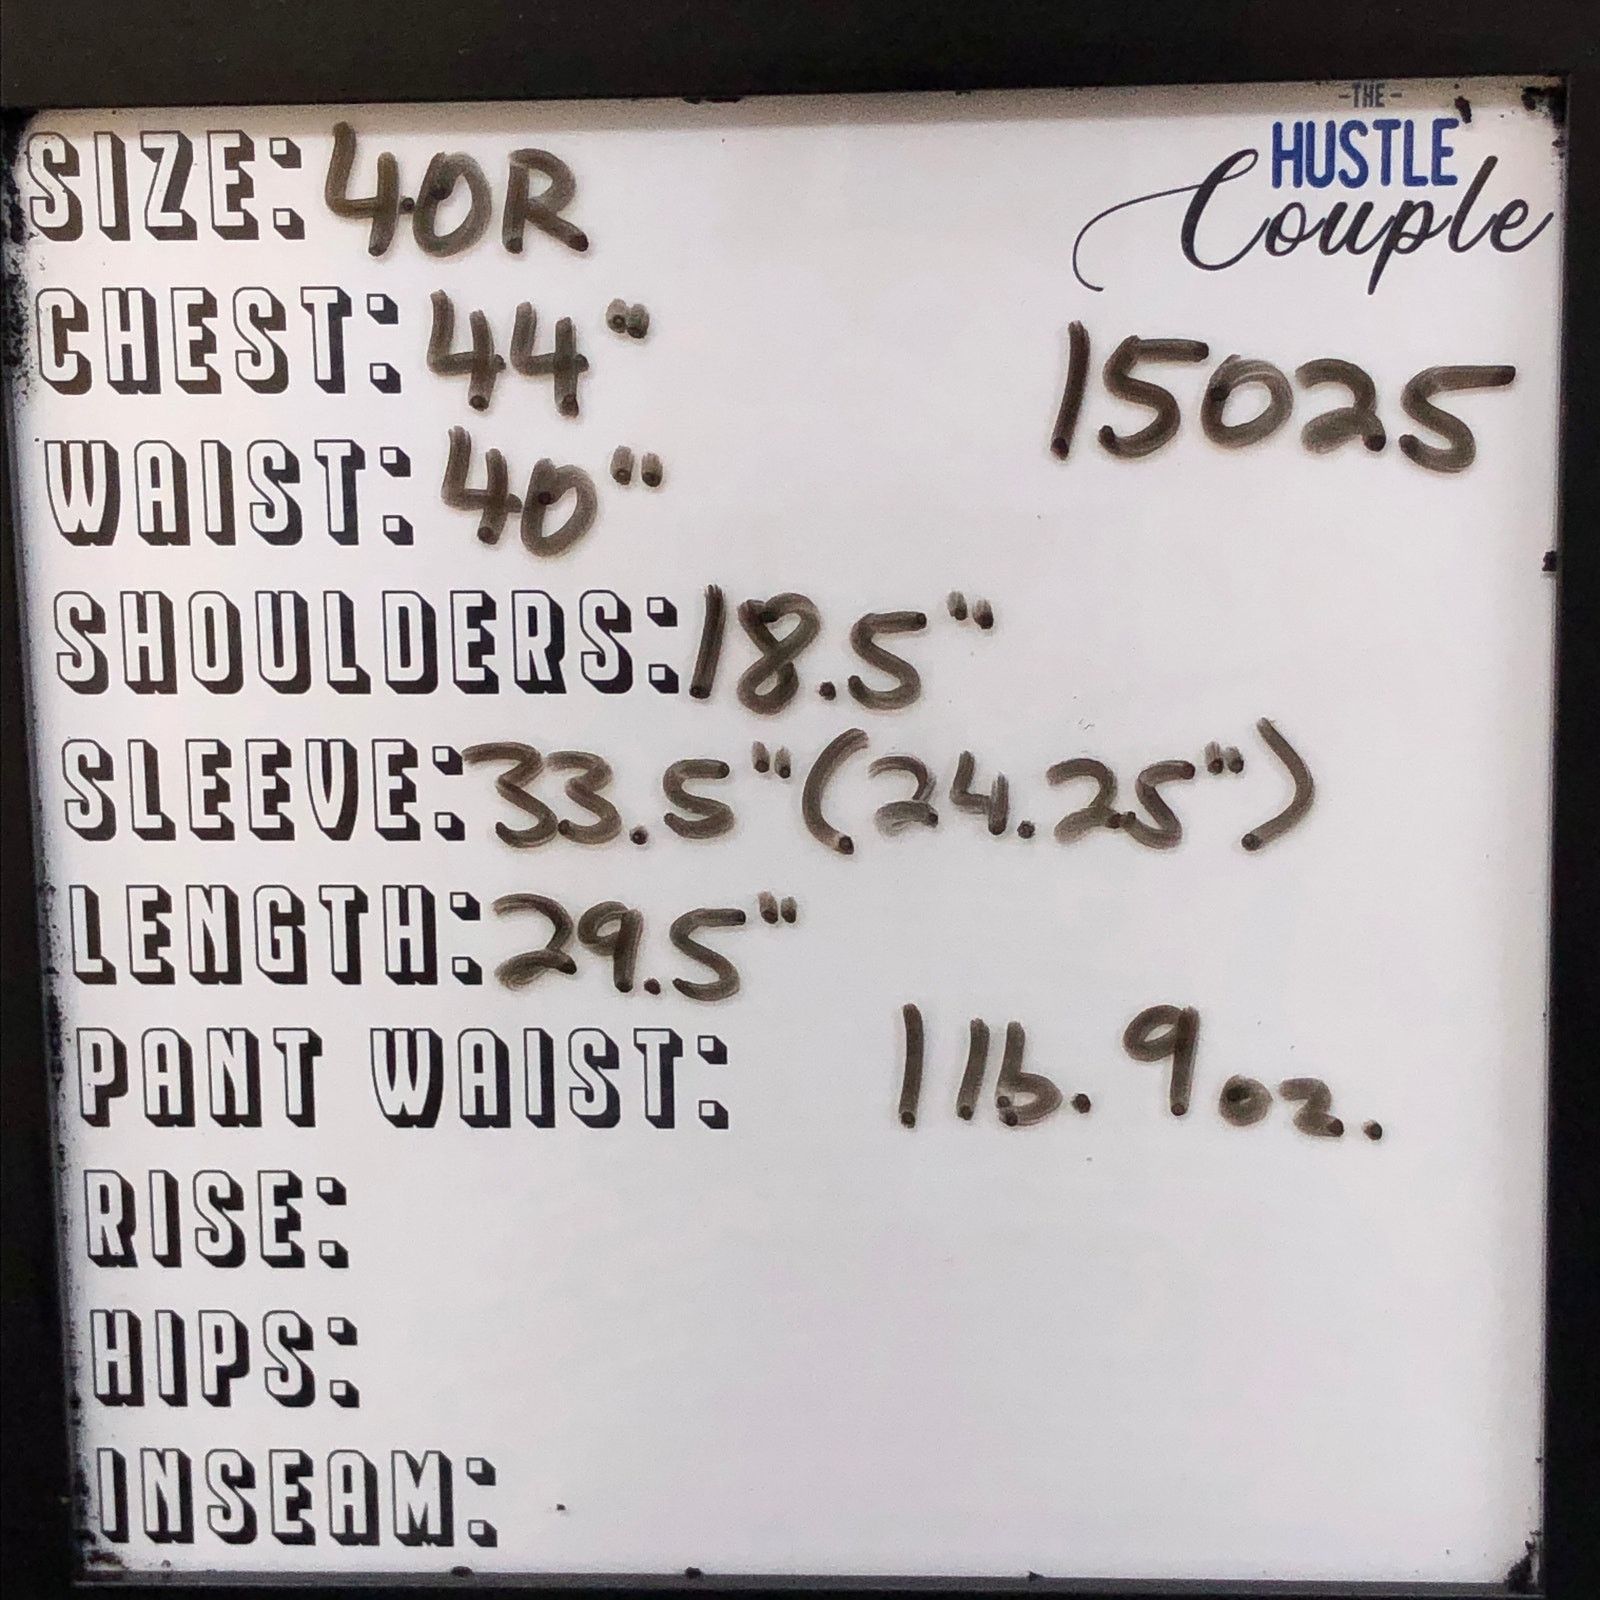 -THE-
HUSTLE
Couple
SIZE: 40R
CHEST: 44"
15025
WAIST: 40"
SHOULDERS: 18.5"
SLEEVE: 33.5" (24.25")
LENGTH: 29.5"
PANT WAIST:
1 lb. 9 oz.
RISE:
HIPS:
INSEAM: